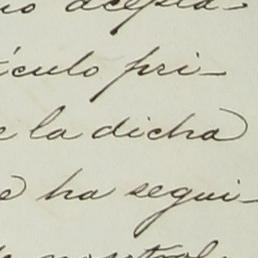 no acepta-
ículo pri-
e la dicha
e ha segui-